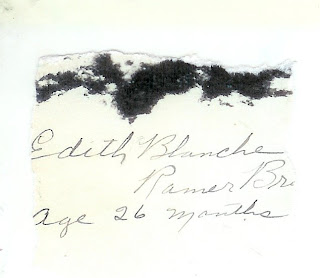 Edith Blanche
Ramer Bre
age 26 months